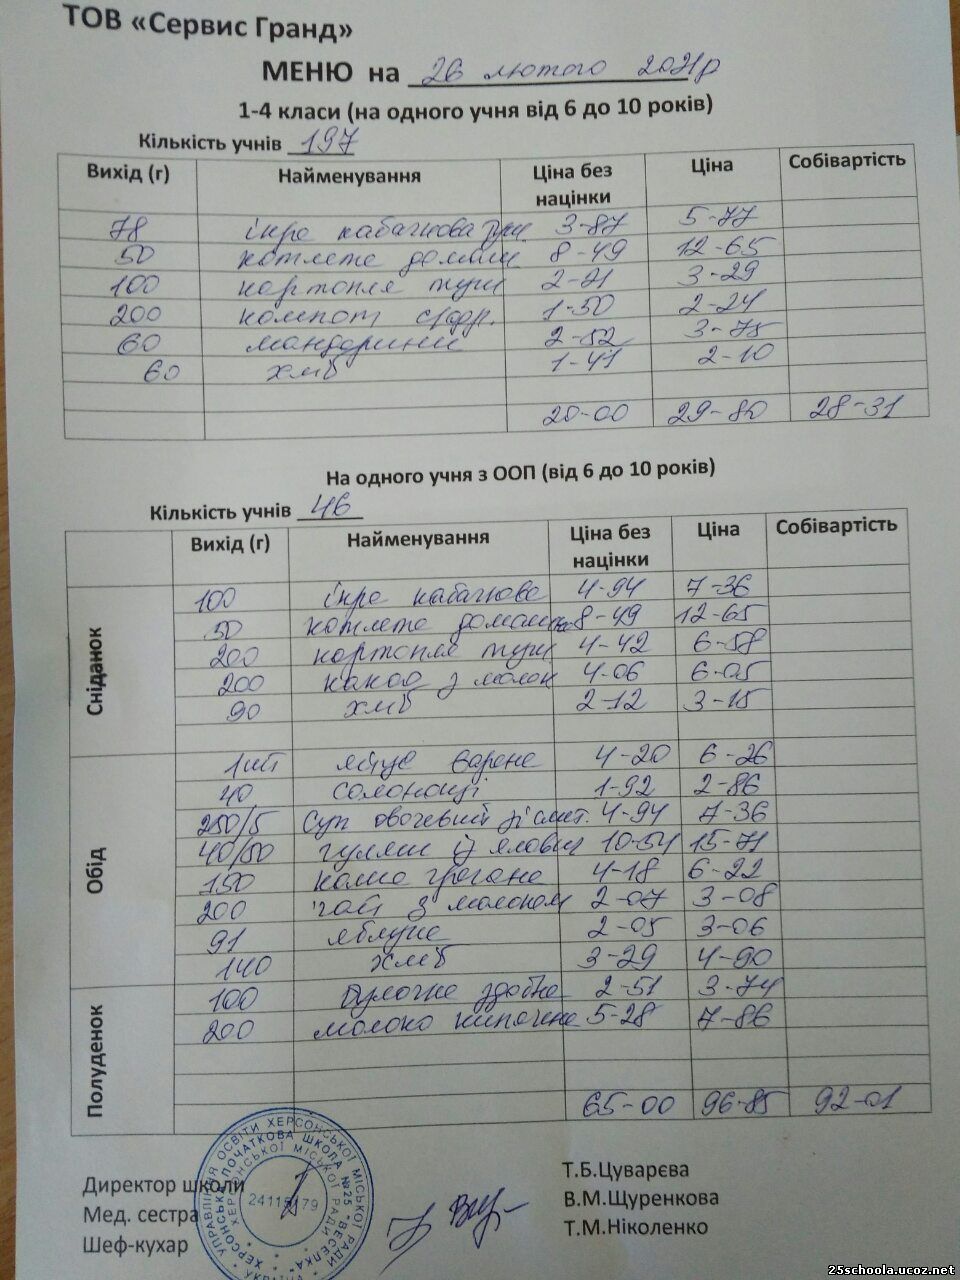 ТОВ «Сервис Гранд»
МЕНЮ на 26 лютого 2021р
1-4 класи (на одного учня від 6 до 10 років)
Кількість учнів 197
Вихід (г) Найменування Ціна без націнки Ціна Собівартість
78 ікра кабачкова 3-87 5-77
50 котлета домаш 8-49 12-65
100 картопля туш 2-21 3-29
200 компот с/фр. 1-50 2-24
60 мандарини 2-52 3-75
60 хліб 1-41 2-10
20-00 29-80 28-31
На одного учня з ООП (від 6 до 10 років)
Кількість учнів 46
Вихід (г) Найменування Ціна без націнки Ціна Собівартість
Сніданок
100 ікра кабачкова 4-94 7-36
50 котлета домашня 8-49 12-65
200 картопля туш 4-42 6-58
200 какао з молок 4-06 6-05
90 хліб 2-12 3-15
Обід
1шт яйце варене 4-20 6-26
40 солонощі 1-92 2-86
250/5 Суп овочевий зі смет. 4-94 7-36
40/50 гуляш із ялович 10-54 15-71
150 каша гречана 4-18 6-22
200 чай з молоком 2-07 3-08
91 яблуко 2-05 3-06
140 хліб 3-29 4-90
Полуденок
100 булочка здобна 2-51 3-74
200 молоко кипячене 5-28 7-86
65-00 96-85 92-01
Директор школи Т.Б.Цуварєва
Мед. сестра В.М.Щуренкова
Шеф-кухар Т.М.Ніколенко
УПРАВЛІННЯ ОСВІТИ ХЕРСОНСЬКОЇ МІСЬКОЇ РАДИ
ХЕРСОНСЬКА ПОЧАТКОВА ШКОЛА №25 "ВЕСЕЛКА"
ХЕРСОНСЬКОЇ МІСЬКОЇ РАДИ
УКРАЇНА
25schoola.ucoz.net